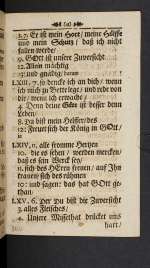 ( 42 )
3. 7. Er ist mein Hort / meine Hülffe
und mein Schutz / daß ich nicht
fallen werde /
9. GOtt ist unsere Zuversicht
12. Allein mächtig
13. und gnädig / darum
LXIII, 7. so dencke ich an dich / wenn
ich mich zu Bette lege / und rede von
dir / wenn ich erwache /
4. Denn deine Güte ist besser denn
Leben /
8. Du bist mein Helfer / des
12. freuet sich der König in GOtt /
LXIV, 11. alle fromme Hertzen
10. die es sehen / werden mercken /
daß es sein Werck sey /
11. sich des HErrn freuen / auf Ihn
trauen und sich des rühmen
10. und sagen: das hat GOtt gethan /
LXV. 6. Der du bist die Zuversicht
3. alles Fleisches /
4. Unsere Missethat drücket uns
hart /